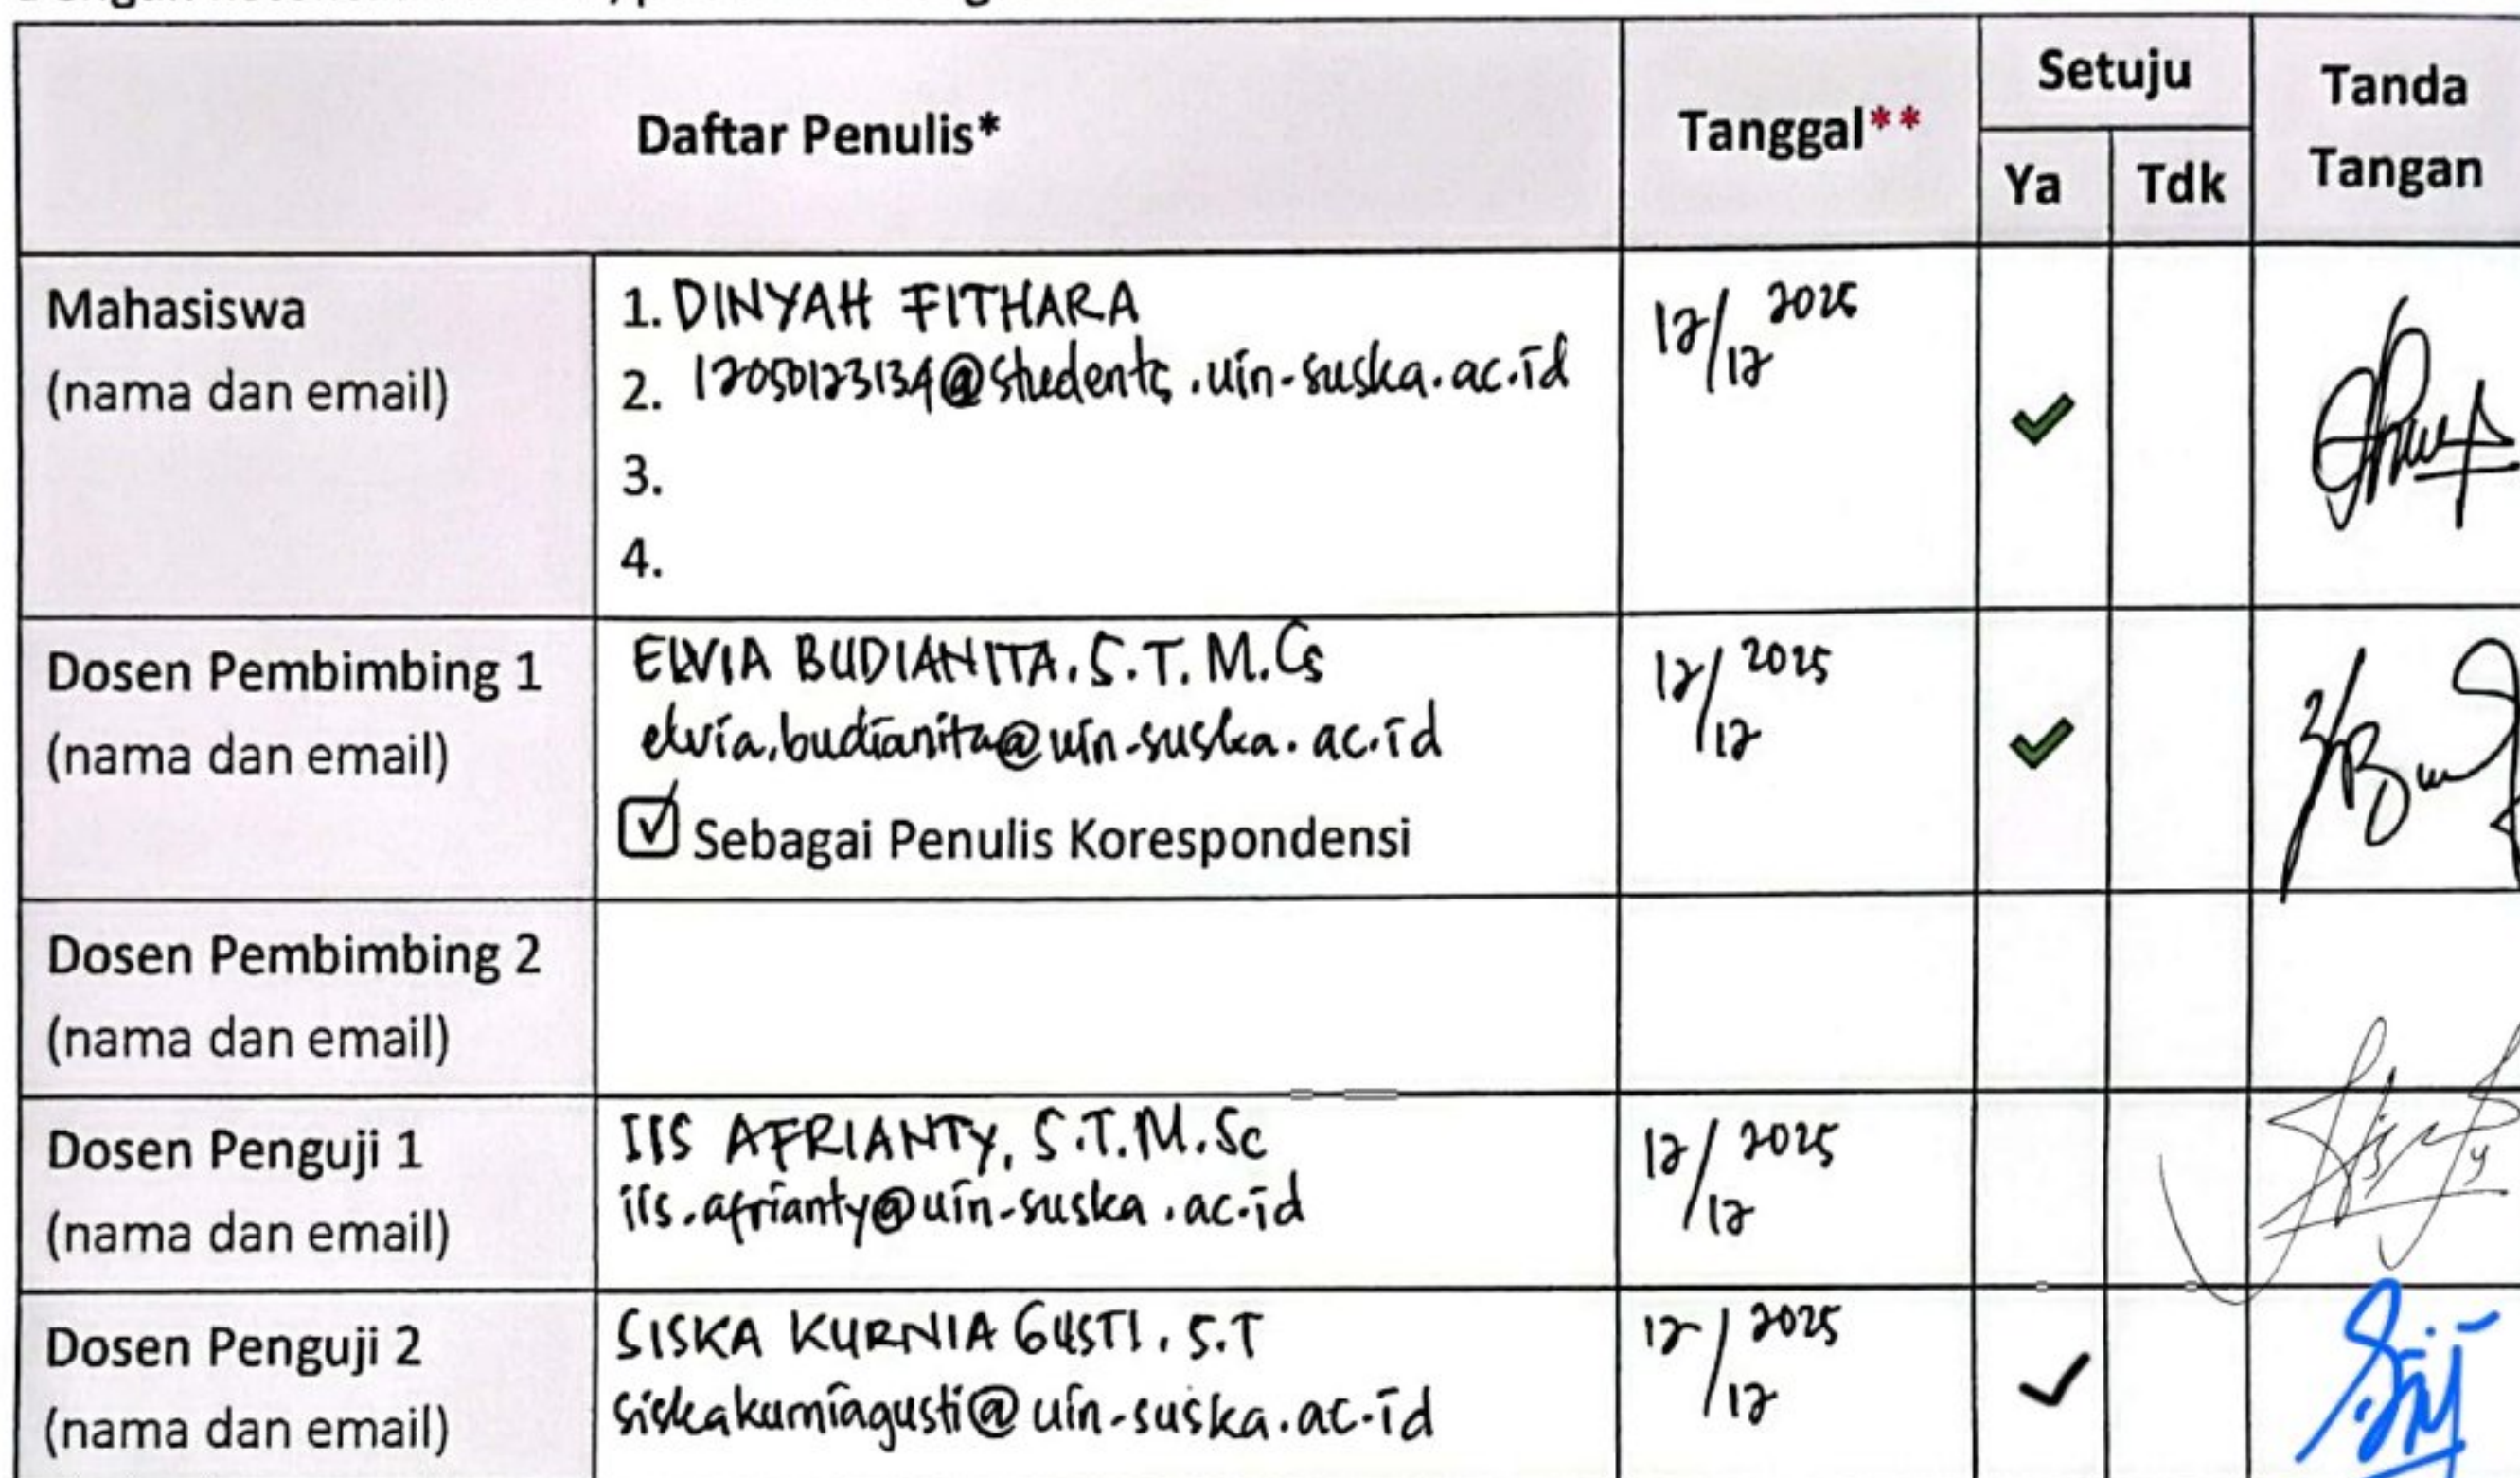 Daftar Penulis*
Tanggal**
Setuju
Ya
Tdk
Tanda
Tangan
Mahasiswa
(nama dan email)
1. DINYAH FITHARA
2. 12050123134@students.uin-suska.ac.id
3.
4.
12/12 2025
Dosen Pembimbing 1
(nama dan email)
ELVIA BUDIANITA, S.T. M.Cs
elvia.budianita@uin-suska.ac.id
Sebagai Penulis Korespondensi
12/12 2025
Dosen Pembimbing 2
(nama dan email)
Dosen Penguji 1
(nama dan email)
IIS AFRIANTY, S.T. M.Sc
iis.afrianty@uin-suska.ac.id
12/12 2025
Dosen Penguji 2
(nama dan email)
SISKA KURNIA GUSTI, S.T
siskakurniagusti@uin-suska.ac.id
12/12 2025